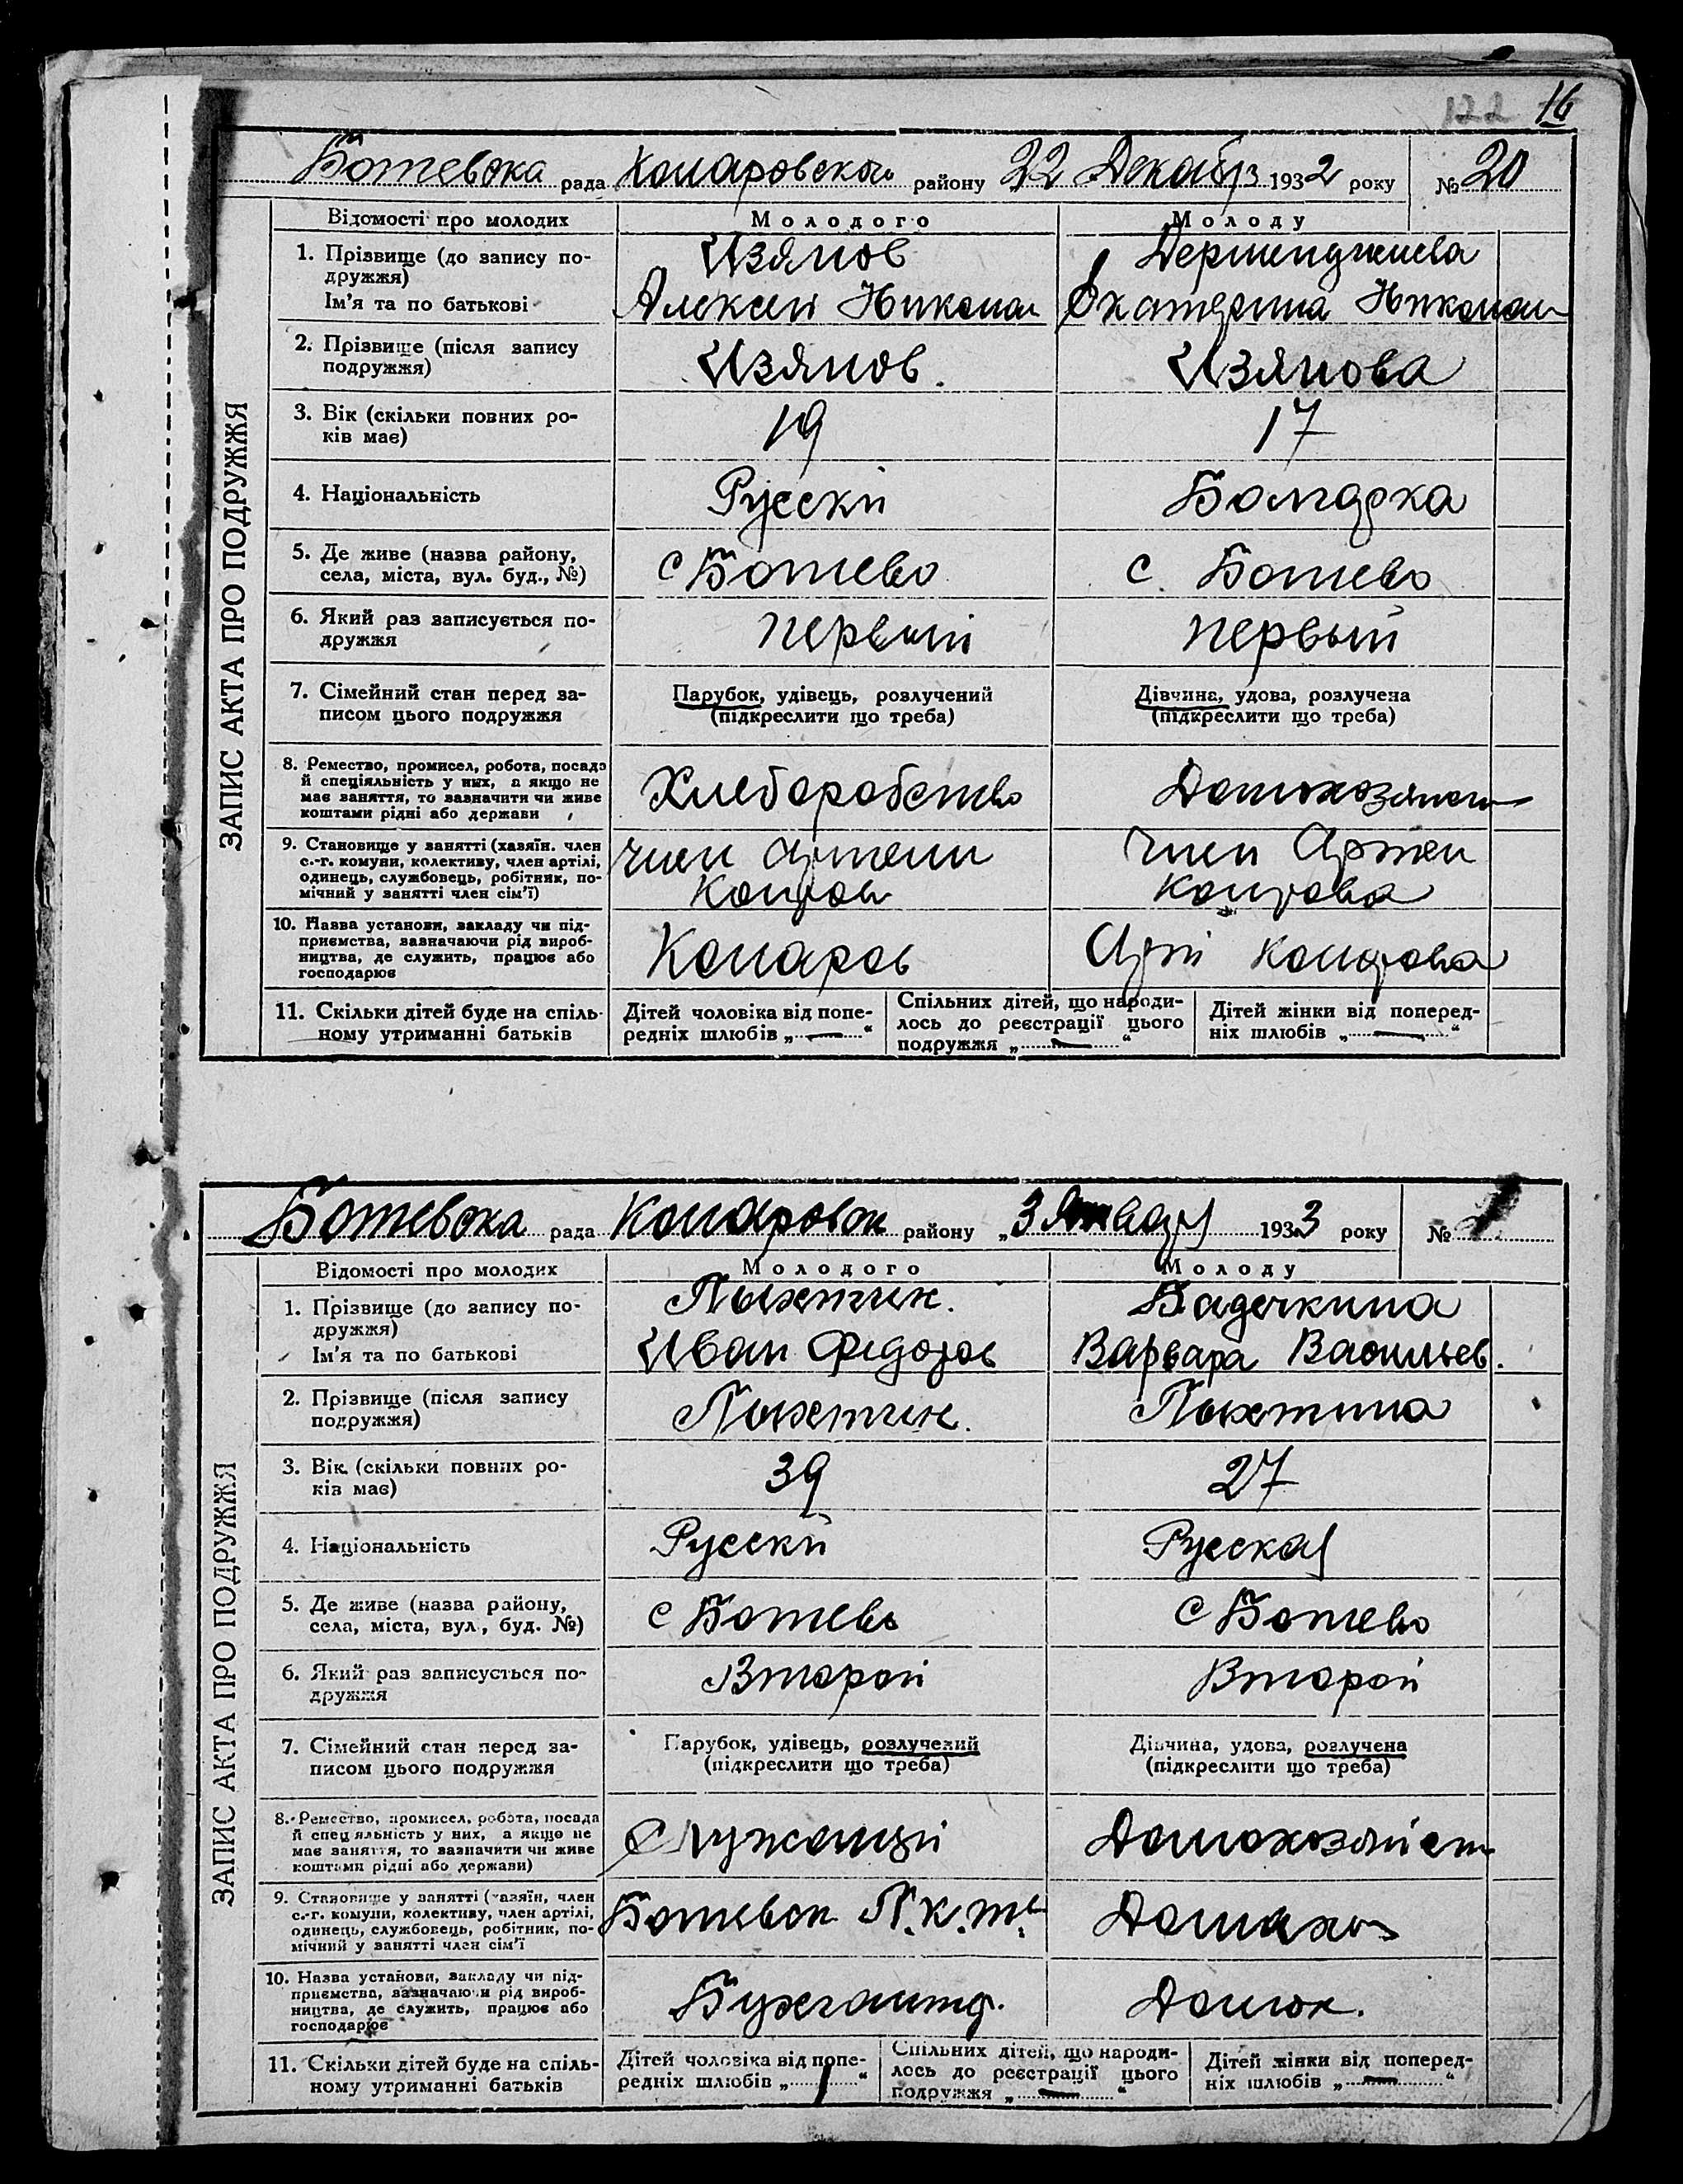 122 16
Ботевска рада Коларовского району 22 Декабрз 1932 року № 20
Відомості про молодих Молодого Молоду
1. Прізвище (до запису по-
дружжя)
Изянов Дерменджиева
Ім'я та по батькові Алексей Никола Екатерина Николаи
2. Прізвище (після запису
подружжя)
Изянов. Изянова
3. Вік (скільки повних ро-
ків має)
19 17
4. Національність Русски Болгарка
5. Де живе (назва району,
села, міста, вул. буд., №)
с Ботево с. Ботево
6. Який раз записується по-
дружжя
первый первый
7. Сімейний стан перед за-
писом цього подружжя
Парубок, удівець, розлучений
(підкреслити що треба)
Дівчина, удова, розлучена
(підкреслити що треба)
8. Ремество, промисел, робота, посада
й спеціяльність у них, а якщо не
має заняття, то зазначити чи живе
коштами рідні або держави
Хлеборобство Домохозяист
9. Становище у занятті (хазяїн. член
с.-г. комуни, колективу, член артілі,
одинець, службовець, робітник, по-
мічний у занятті член сім'ї)
член артели член Артел
Коларов Коларова
10. Назва установи, закладу чи під-
приємства, зазначаючи рід вироб-
ництва, де служить, працює або
господарює
Коларов Арт Коларова
11. Скільки дітей буде на спіль-
ному утриманні батьків
Дітей чоловіка від попе-
редніх шлюбів „—“
Спільних дітей, що народи-
лось до реєстрації цього
подружжя „—“
Дітей жінки від поперед-
ніх шлюбів „—“
ЗАПИС АКТА ПРО ПОДРУЖЖЯ
Ботевска рада Коларовск району „3 Январ 1933 року № 1
Відомості про молодих Молодого Молоду
1. Прізвище (до запису по-
дружжя)
Ім'я та по батькові Иван Федоров Варвара Васильев.
2. Прізвище (після запису
подружжя)
3. Вік (скільки повних ро-
ків має)
39 27
4. Національність Русски Русская
5. Де живе (назва району,
села, міста, вул., буд. №)
с Ботево с Ботево
6. Який раз записується по-
дружжя
Второй Второй
7. Сімейний стан перед за-
писом цього подружжя
Парубок, удівець, розлучений
(підкреслити що треба)
Дівчина, удова, розлучена
(підкреслити що треба)
8. Ремество, промисел, робота, посада
й спеціяльність у них, а якщо не
має заняття, то зазначити чи живе
коштами рідні або держави)
Служащий Домохозяйст
9. Становище у занятті (хазяїн, член
с.-г. комуни, колективу, член артілі,
одинець, службовець, робітник, по-
мічний у занятті член сім'ї
Ботевск П.к.т. Домахоз
10. Назва установи, закладу чи під-
приємства, зазначаючи рід вироб-
ництва, де служить, працює або
господарює
Бухгалтер. Домох.
11. Скільки дітей буде на спіль-
ному утриманні батьків
Дітей чоловіка від попе-
редніх шлюбів „1“
Спільних дітей, що народи-
лось до реєстрації цього
подружжя „—“
Дітей жінки від поперед-
ніх шлюбів „—“
ЗАПИС АКТА ПРО ПОДРУЖЖЯ